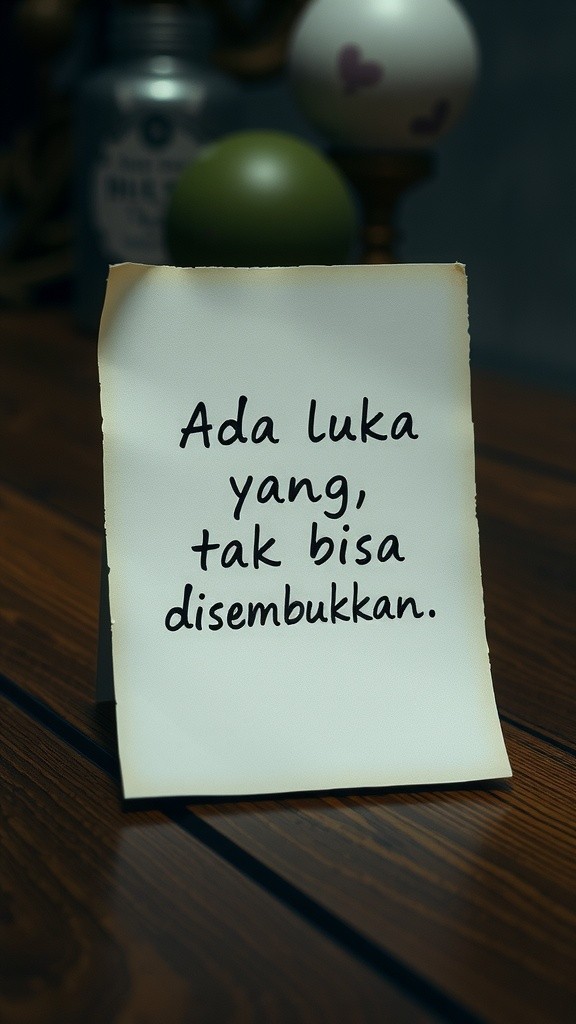 Ada luka
yang,
tak bisa
disembukkan.